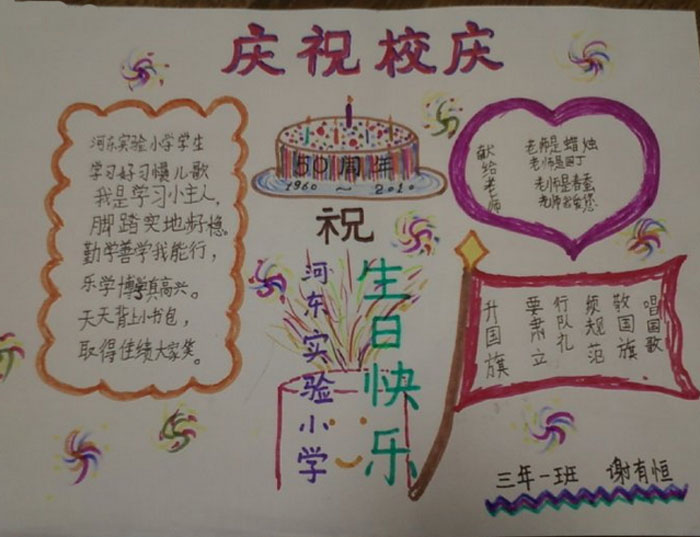 庆祝校庆
河东实验小学学生
学习好习惯儿歌
我是学习小主人,
脚踏实地好稳。
勤学善学我能行,
乐学博学真高兴。
天天背上小书包,
取得佳绩大家笑。
50周年
1960 ~ 2010
祝
河东实验小学
生日快乐
献给老师
老师是蜡烛
老师是园丁
老师是春蚕
老师我爱您
升国旗
要肃立
行队礼
须规范
敬国旗
唱国歌
三年一班 谢有恒